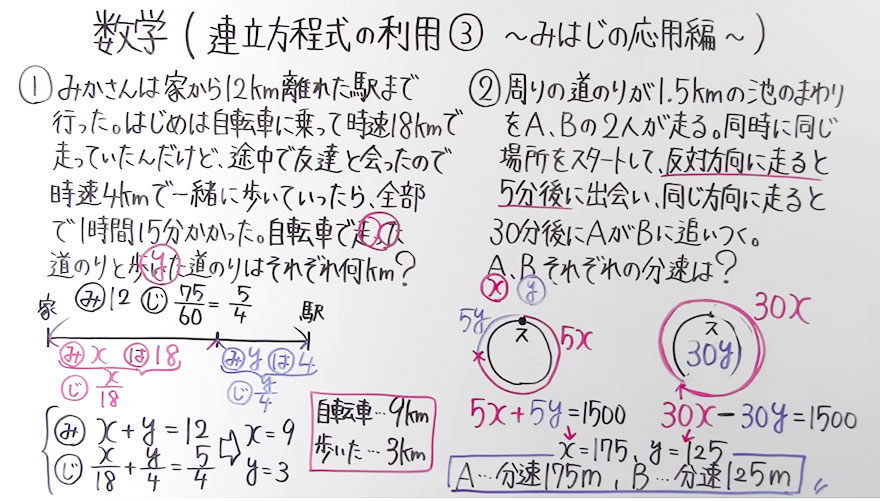 数学 ( 連立方程式の利用③ ～みはじの応用編～ )
① みかさんは家から12km離れた駅まで
行った。はじめは自転車に乗って時速18kmで
走っていたんだけど、途中で友達と会ったので
時速4kmで一緒に歩いていったら、全部
で1時間15分かかった。自転車で走った
道のりと歩いた道のりはそれぞれ何km?
x
y
家 み12 じ 75/60 = 5/4 駅
み x は 18 み y は 4
じ x/18 じ y/4
み x + y = 12 ⇨ x = 9
じ x/18 + y/4 = 5/4 y = 3
自転車…9km
歩いた…3km
② 周りの道のりが1.5kmの池のまわり
をA、Bの2人が走る。同時に同じ
場所をスタートして、反対方向に走ると
5分後に出会い、同じ方向に走ると
30分後にAがBに追いつく。
A、Bそれぞれの分速は?
x y
5y ス 5x
ス 30x
30y
5x + 5y = 1500 30x − 30y = 1500
x = 175, y = 125
A…分速175m, B…分速125m